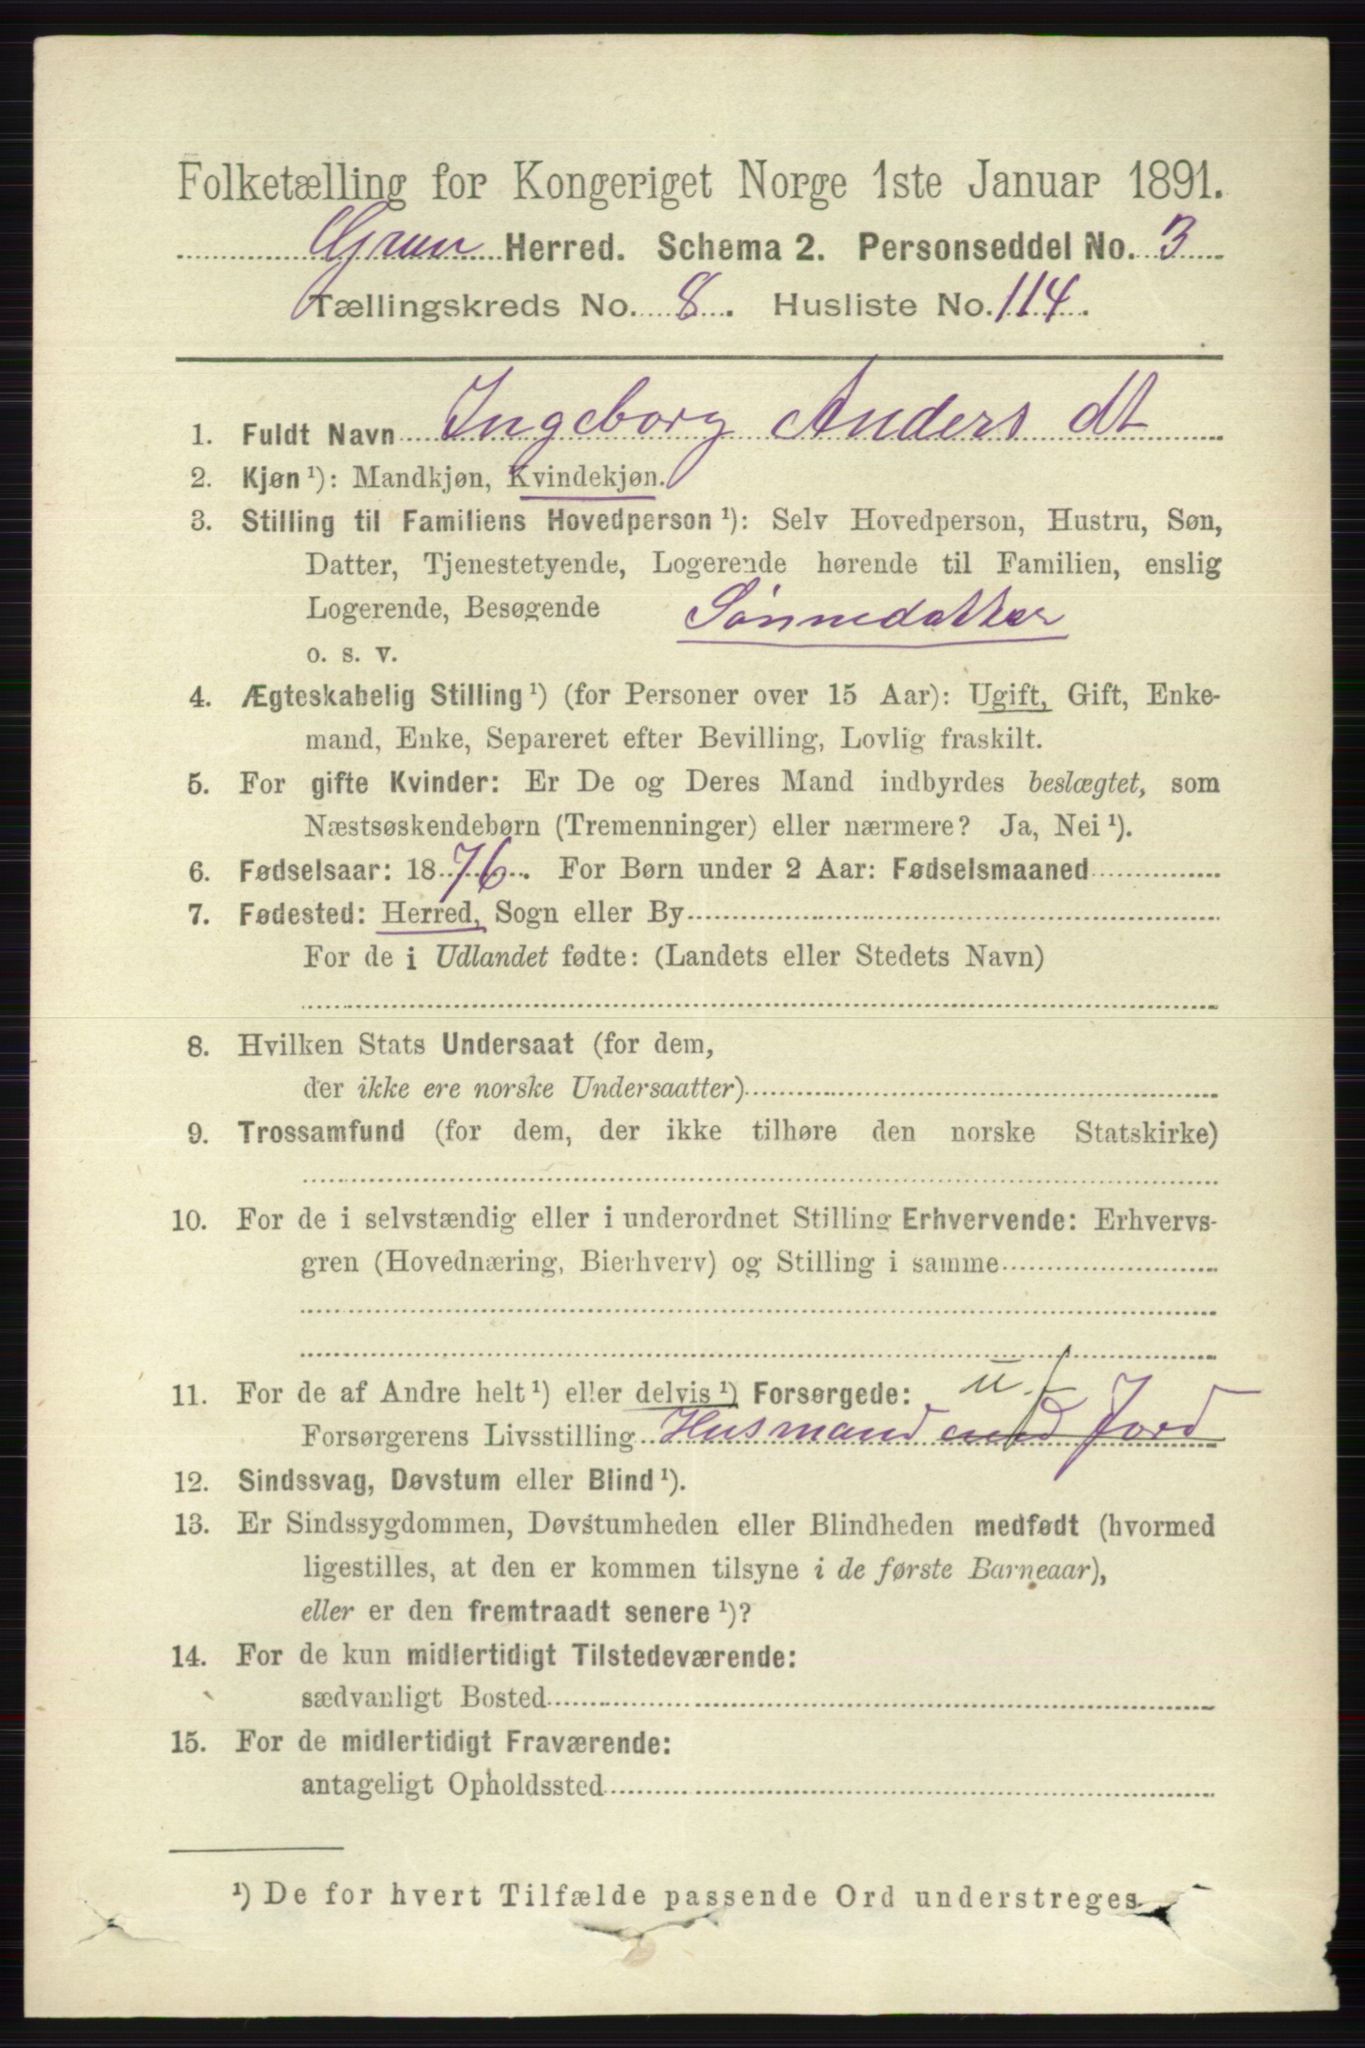 Folketælling for Kongeriget Norge 1ste Januar 1891.
Gran Herred. Schema 2. Personseddel No. 3
Tællingskreds No. 8. Husliste No. 114.
1. Fuldt Navn Ingeborg Anders dt
2. Kjøn ¹): Mandkjøn, Kvindekjøn.
3. Stilling til Familiens Hovedperson ¹): Selv Hovedperson, Hustru, Søn,
Datter, Tjenestetyende, Logerende hørende til Familien, enslig
Logerende, Besøgende Sønnedatter
o. s. v.
4. Ægteskabelig Stilling ¹) (for Personer over 15 Aar): Ugift, Gift, Enke-
mand, Enke, Separeret efter Bevilling, Lovlig fraskilt.
5. For gifte Kvinder: Er De og Deres Mand indbyrdes beslægtet, som
Næstsøskendebørn (Tremenninger) eller nærmere? Ja, Nei ¹).
6. Fødselsaar: 1876. For Børn under 2 Aar: Fødselsmaaned
7. Fødested: Herred, Sogn eller By
For de i Udlandet fødte: (Landets eller Stedets Navn)
8. Hvilken Stats Undersaat (for dem,
der ikke ere norske Undersaatter)
9. Trossamfund (for dem, der ikke tilhøre den norske Statskirke)
10. For de i selvstændig eller i underordnet Stilling Erhvervende: Erhvervs-
gren (Hovednæring, Bierhverv) og Stilling i samme
11. For de af Andre helt ¹) eller delvis ¹) Forsørgede: u. f
Forsørgerens Livsstilling Husmand med Jord
12. Sindssvag, Døvstum eller Blind ¹).
13. Er Sindssygdommen, Døvstumheden eller Blindheden medfødt (hvormed
ligestilles, at den er kommen tilsyne i de første Barneaar),
eller er den fremtraadt senere ¹)?
14. For de kun midlertidigt Tilstedeværende:
sædvanligt Bosted
15. For de midlertidigt Fraværende:
antageligt Opholdssted
¹) De for hvert Tilfælde passende Ord understreges.